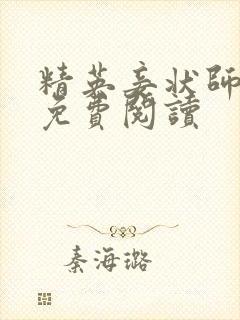 精英妾狀師
免費閱讀
秦海璐